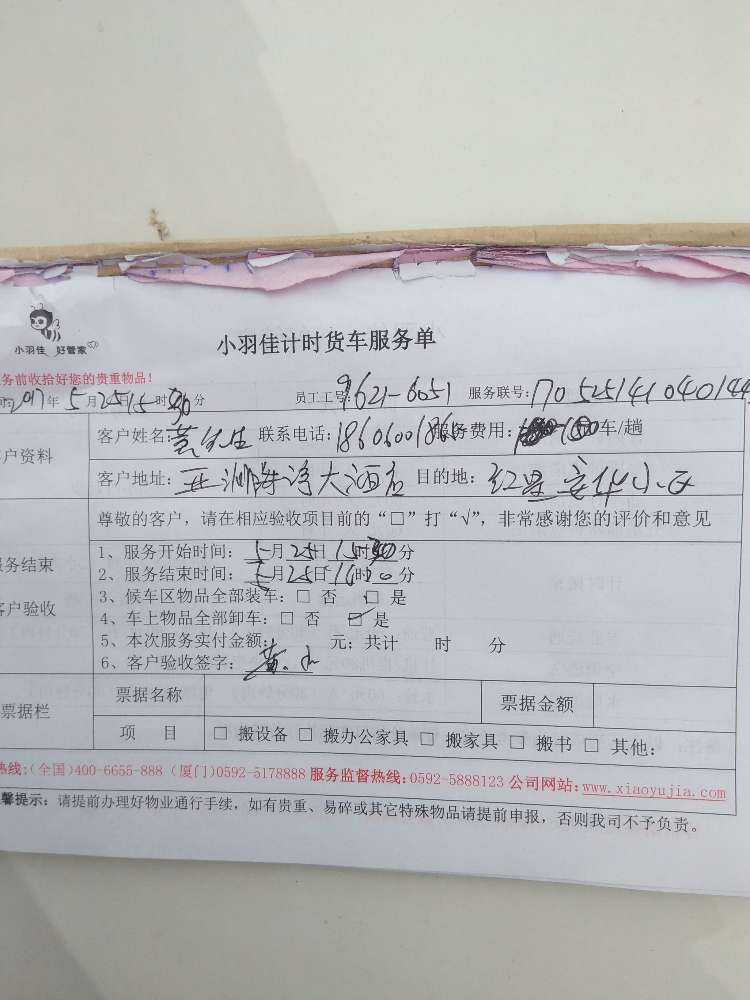 小羽佳 好管家
小羽佳计时货车服务单
务前收拾好您的贵重物品!
2017年5月25日15时30分 员工工号:9621-6051 服务联号:170525141040144
户资料 客户姓名:黄先生 联系电话: 服务费用: 车/趟
客户地址:亚洲海湾大酒店 目的地:红星 小区
尊敬的客户,请在相应验收项目前的“□”打“√”,非常感谢您的评价和意见
务结束
户验收
1、服务开始时间:5月25日15时30分
2、服务结束时间:5月25日16时 分
3、候车区物品全部装车:□ 否 □ 是
4、车上物品全部卸车:□ 否 ☑ 是
5、本次服务实付金额: 元;共计 时 分
6、客户验收签字:黄
票据栏 票据名称 票据金额
项 目 □ 搬设备 □ 搬办公家具 □ 搬家具 □ 搬书 □ 其他:
热线:(全国)400-6655-888 (厦门)0592-5178888 服务监督热线:0592-5888123 公司网站:www.xiaoyujia.com
馨提示:请提前办理好物业通行手续,如有贵重、易碎或其它特殊物品请提前申报,否则我司不予负责。